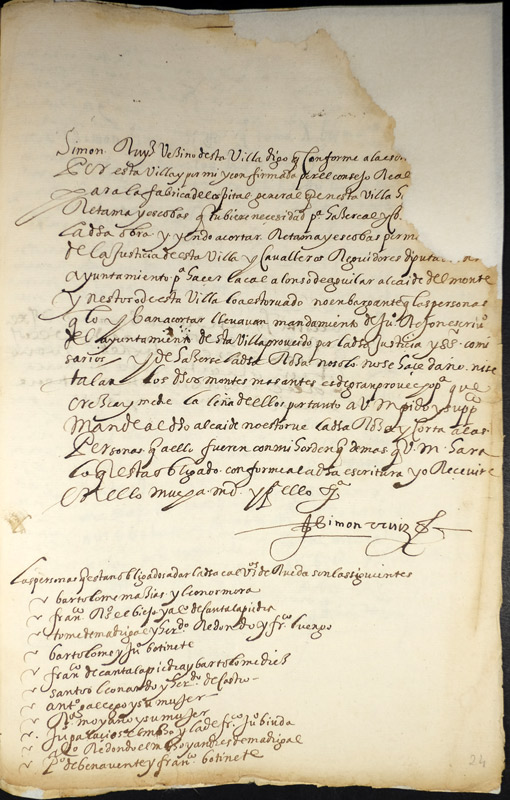 Simon Ruyz Vezino desta Villa digo q conforme a la escri
Por esta villa y por mi y confirmada por el consejo Real
para la fabrica del ospital general q en esta Villa
Retama y escobas q tubiere necesidad pa hazer cal y
la dha obra y yendo a cortar Retama y escobas
de la Justicia de esta Villa y Cavalleros Regidores diputa
ayuntamiento pa hazer la cal alonso de aguilar alcaide del monte
y nestoro de esta Villa lo a estorvado no enbargante q las personas
q lo yban a cortar llevavan mandamiento de Ju
del ayuntamiento desta villa proveido por la dha Justicia y ss comi
sarios y de hazerse la dha Roza no solo no se haze daño ni se
talan los dhos montes mas antes es de gran provecho pa que
crezca y mede la leña de ellos por tanto a V m pido y supco
Mande al dho alcaide no estorve la dha Roza y corta a las
Personas q a ello fueren con mi horden q demas q V. m. hara
lo q esta obligado conforme a la dha escritura yo Recevire
en ello mucha md y pa ello
Simon rruiz
Las personas q estan obligados a dar la dha cal vos de Rueda son las siguientes
bartolome masias y leonor mora
franco Ros el biejo y alo de cantalapiedra
tome de madrigal y herdo Redondo y frco luengo
bartolome y ju botinete
franco de cantalapiedra y bartolome diez
santos leonardo y herdo de castro
anto gallego y su muger
po moyano y su muger
ju palacios el mozo y la de frco ju biuda
Redondo el mozo y andres de madrigal
po de benavente y franco botinete
24